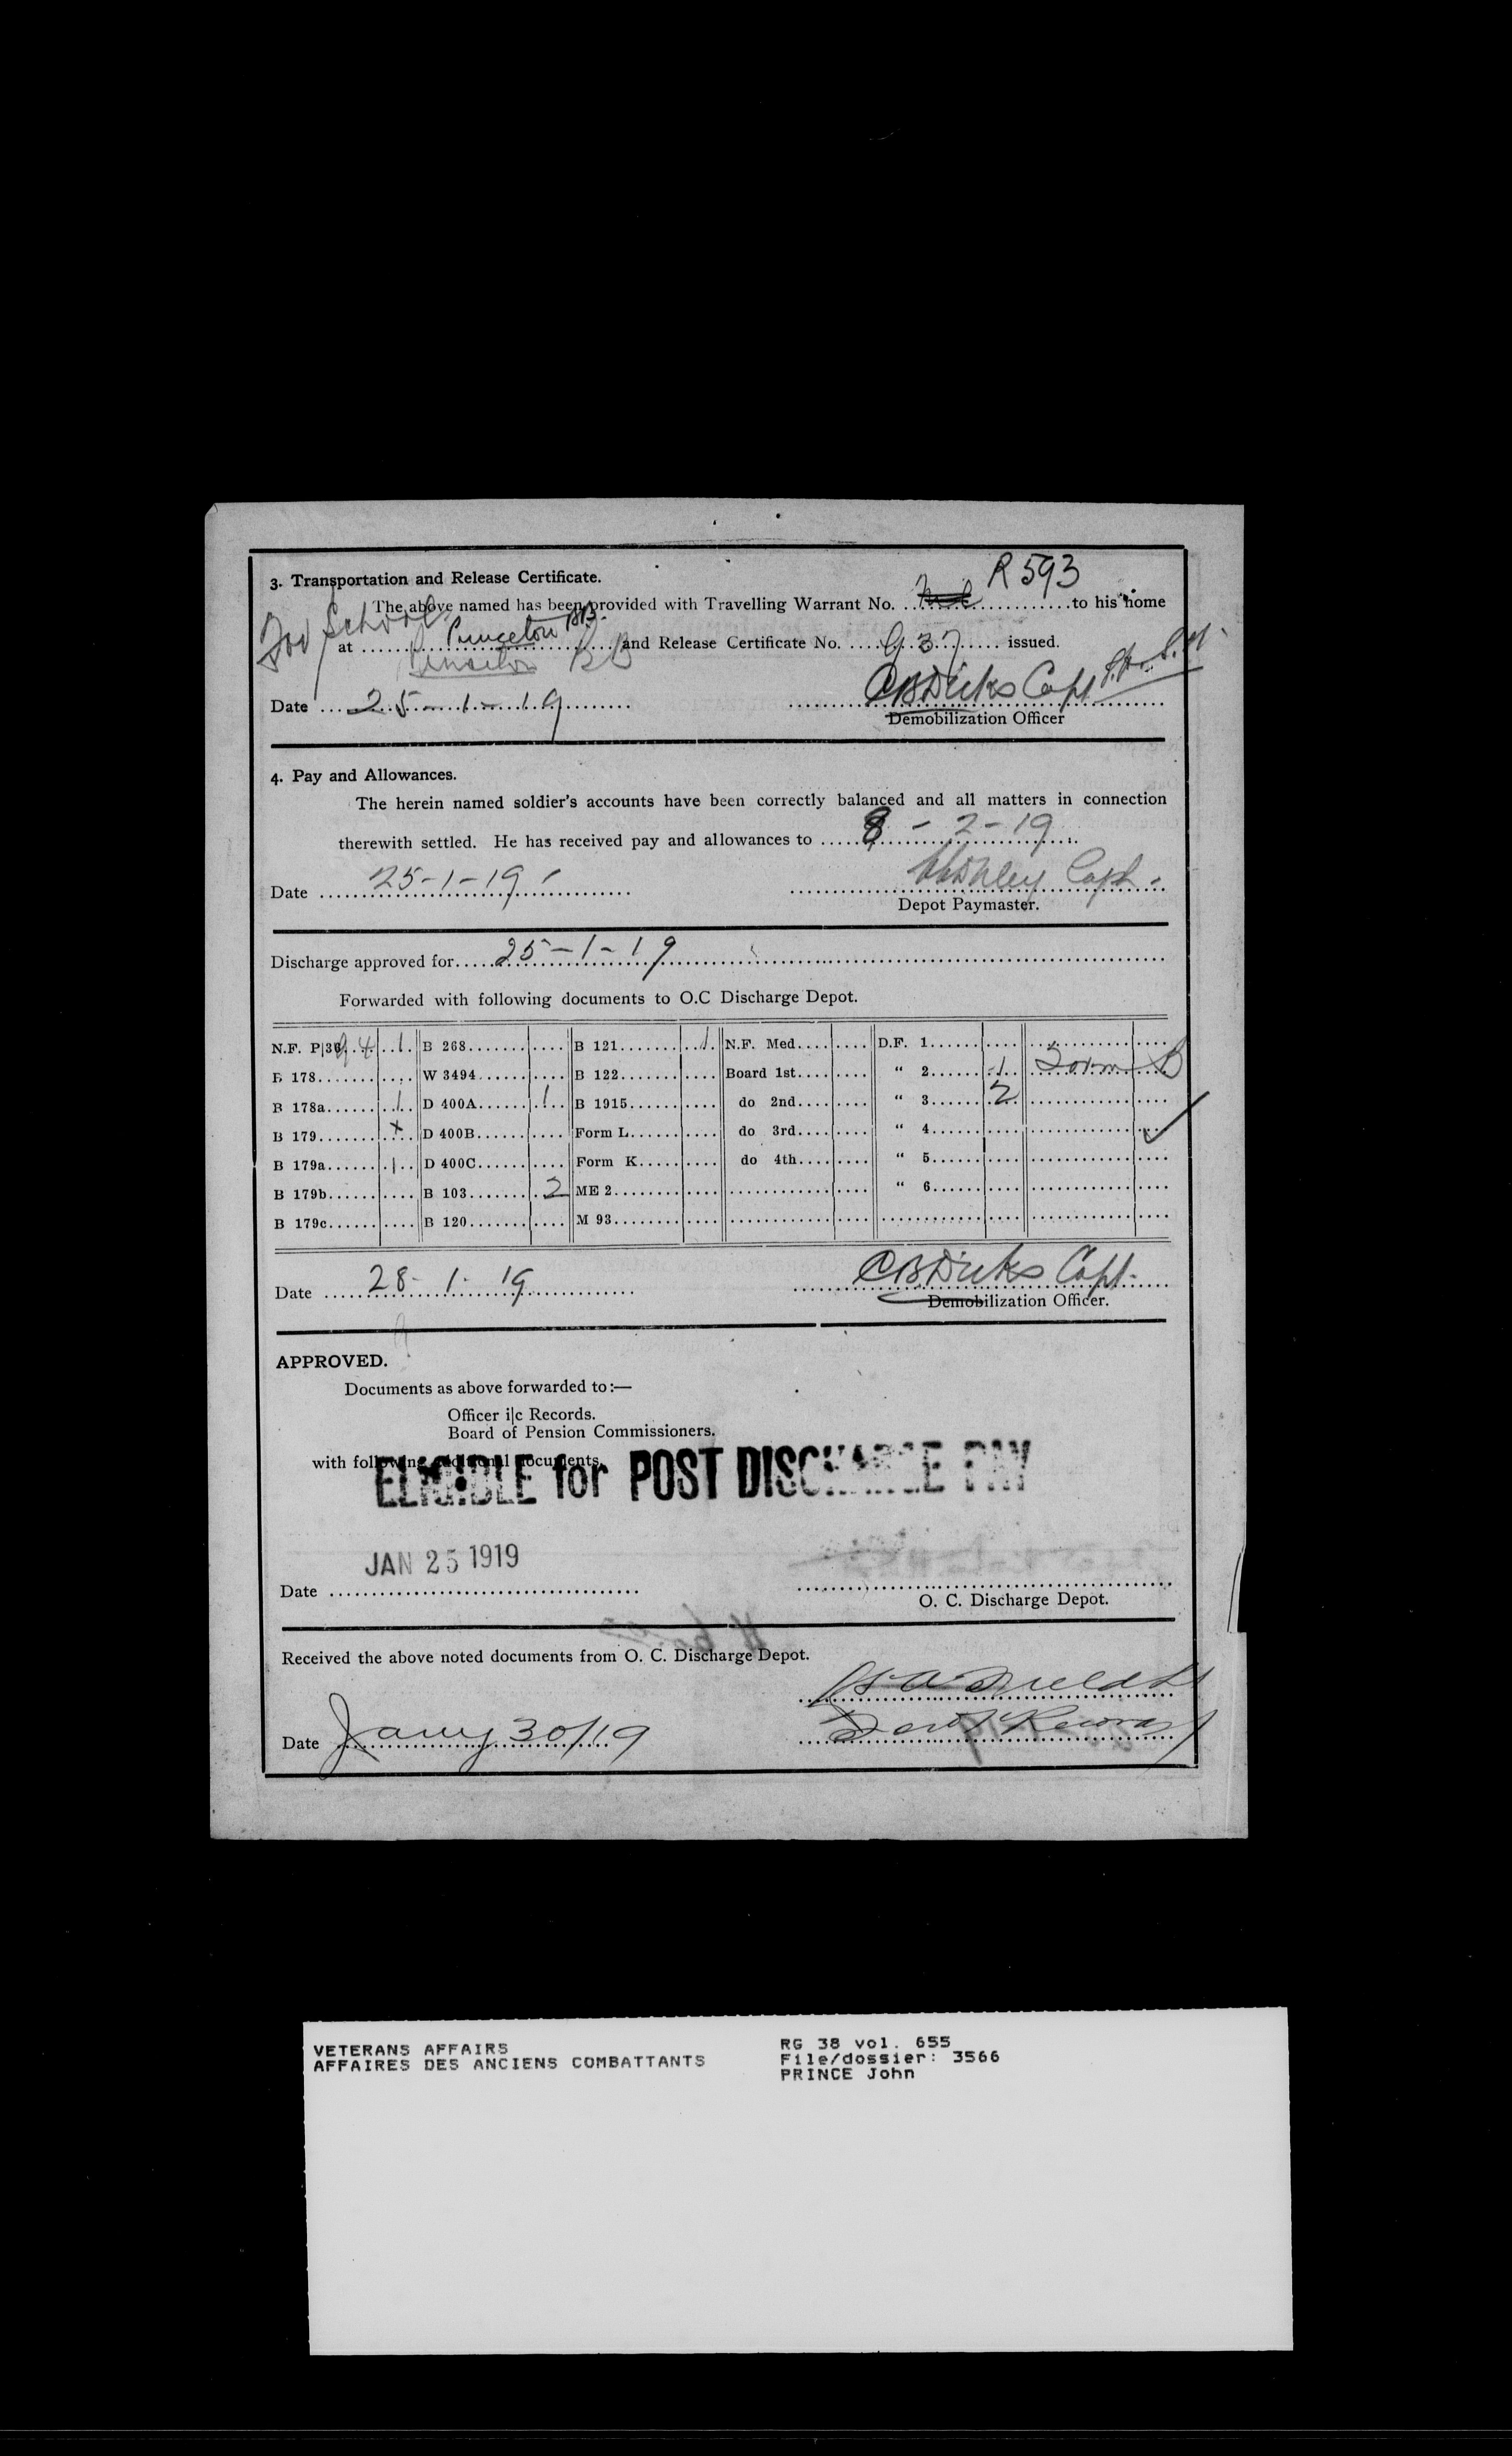 3. Transportation and Release Certificate.
R 593
The above named has been provided with Travelling Warrant No. .................... to his home
School
Princeton BB.
at .................... and Release Certificate No. .... G 37 .... issued.
Princeton BB
Date ... 25-1-19 ....................
CB Dicks Capt
Demobilization Officer
4. Pay and Allowances.
The herein named soldier's accounts have been correctly balanced and all matters in connection
therewith settled. He has received pay and allowances to ..... 8 - 2 - 19
Date .... 25-1-19 ....................
Capt.
Depot Paymaster.
Discharge approved for..... 25-1-19 ....................
Forwarded with following documents to O.C Discharge Depot.
N.F. P|36 .... 1 B 268.... B 121.... 1 N.F. Med.... D.F. 1....
B 178.... W 3494.... B 122.... Board 1st.... " 2.... 1 .... Form B
B 178a.... 1 D 400A.... 1 B 1915.... do 2nd.... " 3.... 2
B 179.... x D 400B.... Form L.... do 3rd.... " 4....
B 179a.... 1 D 400C.... Form K.... do 4th.... " 5....
B 179b.... B 103.... 2 ME 2.... " 6....
B 179c.... B 120.... M 93....
Date .... 28-1-19 ....................
CB Dicks Capt.
Demobilization Officer.
APPROVED.
Documents as above forwarded to:—
Officer i|c Records.
Board of Pension Commissioners.
with following additional documents.
ELIGIBLE for POST DISCHARGE PAY
JAN 25 1919
Date ....................
O. C. Discharge Depot.
Received the above noted documents from O. C. Discharge Depot.
Date Jany 30/19
VETERANS AFFAIRS
AFFAIRES DES ANCIENS COMBATTANTS
RG 38 vol. 655
File/dossier: 3566
PRINCE John